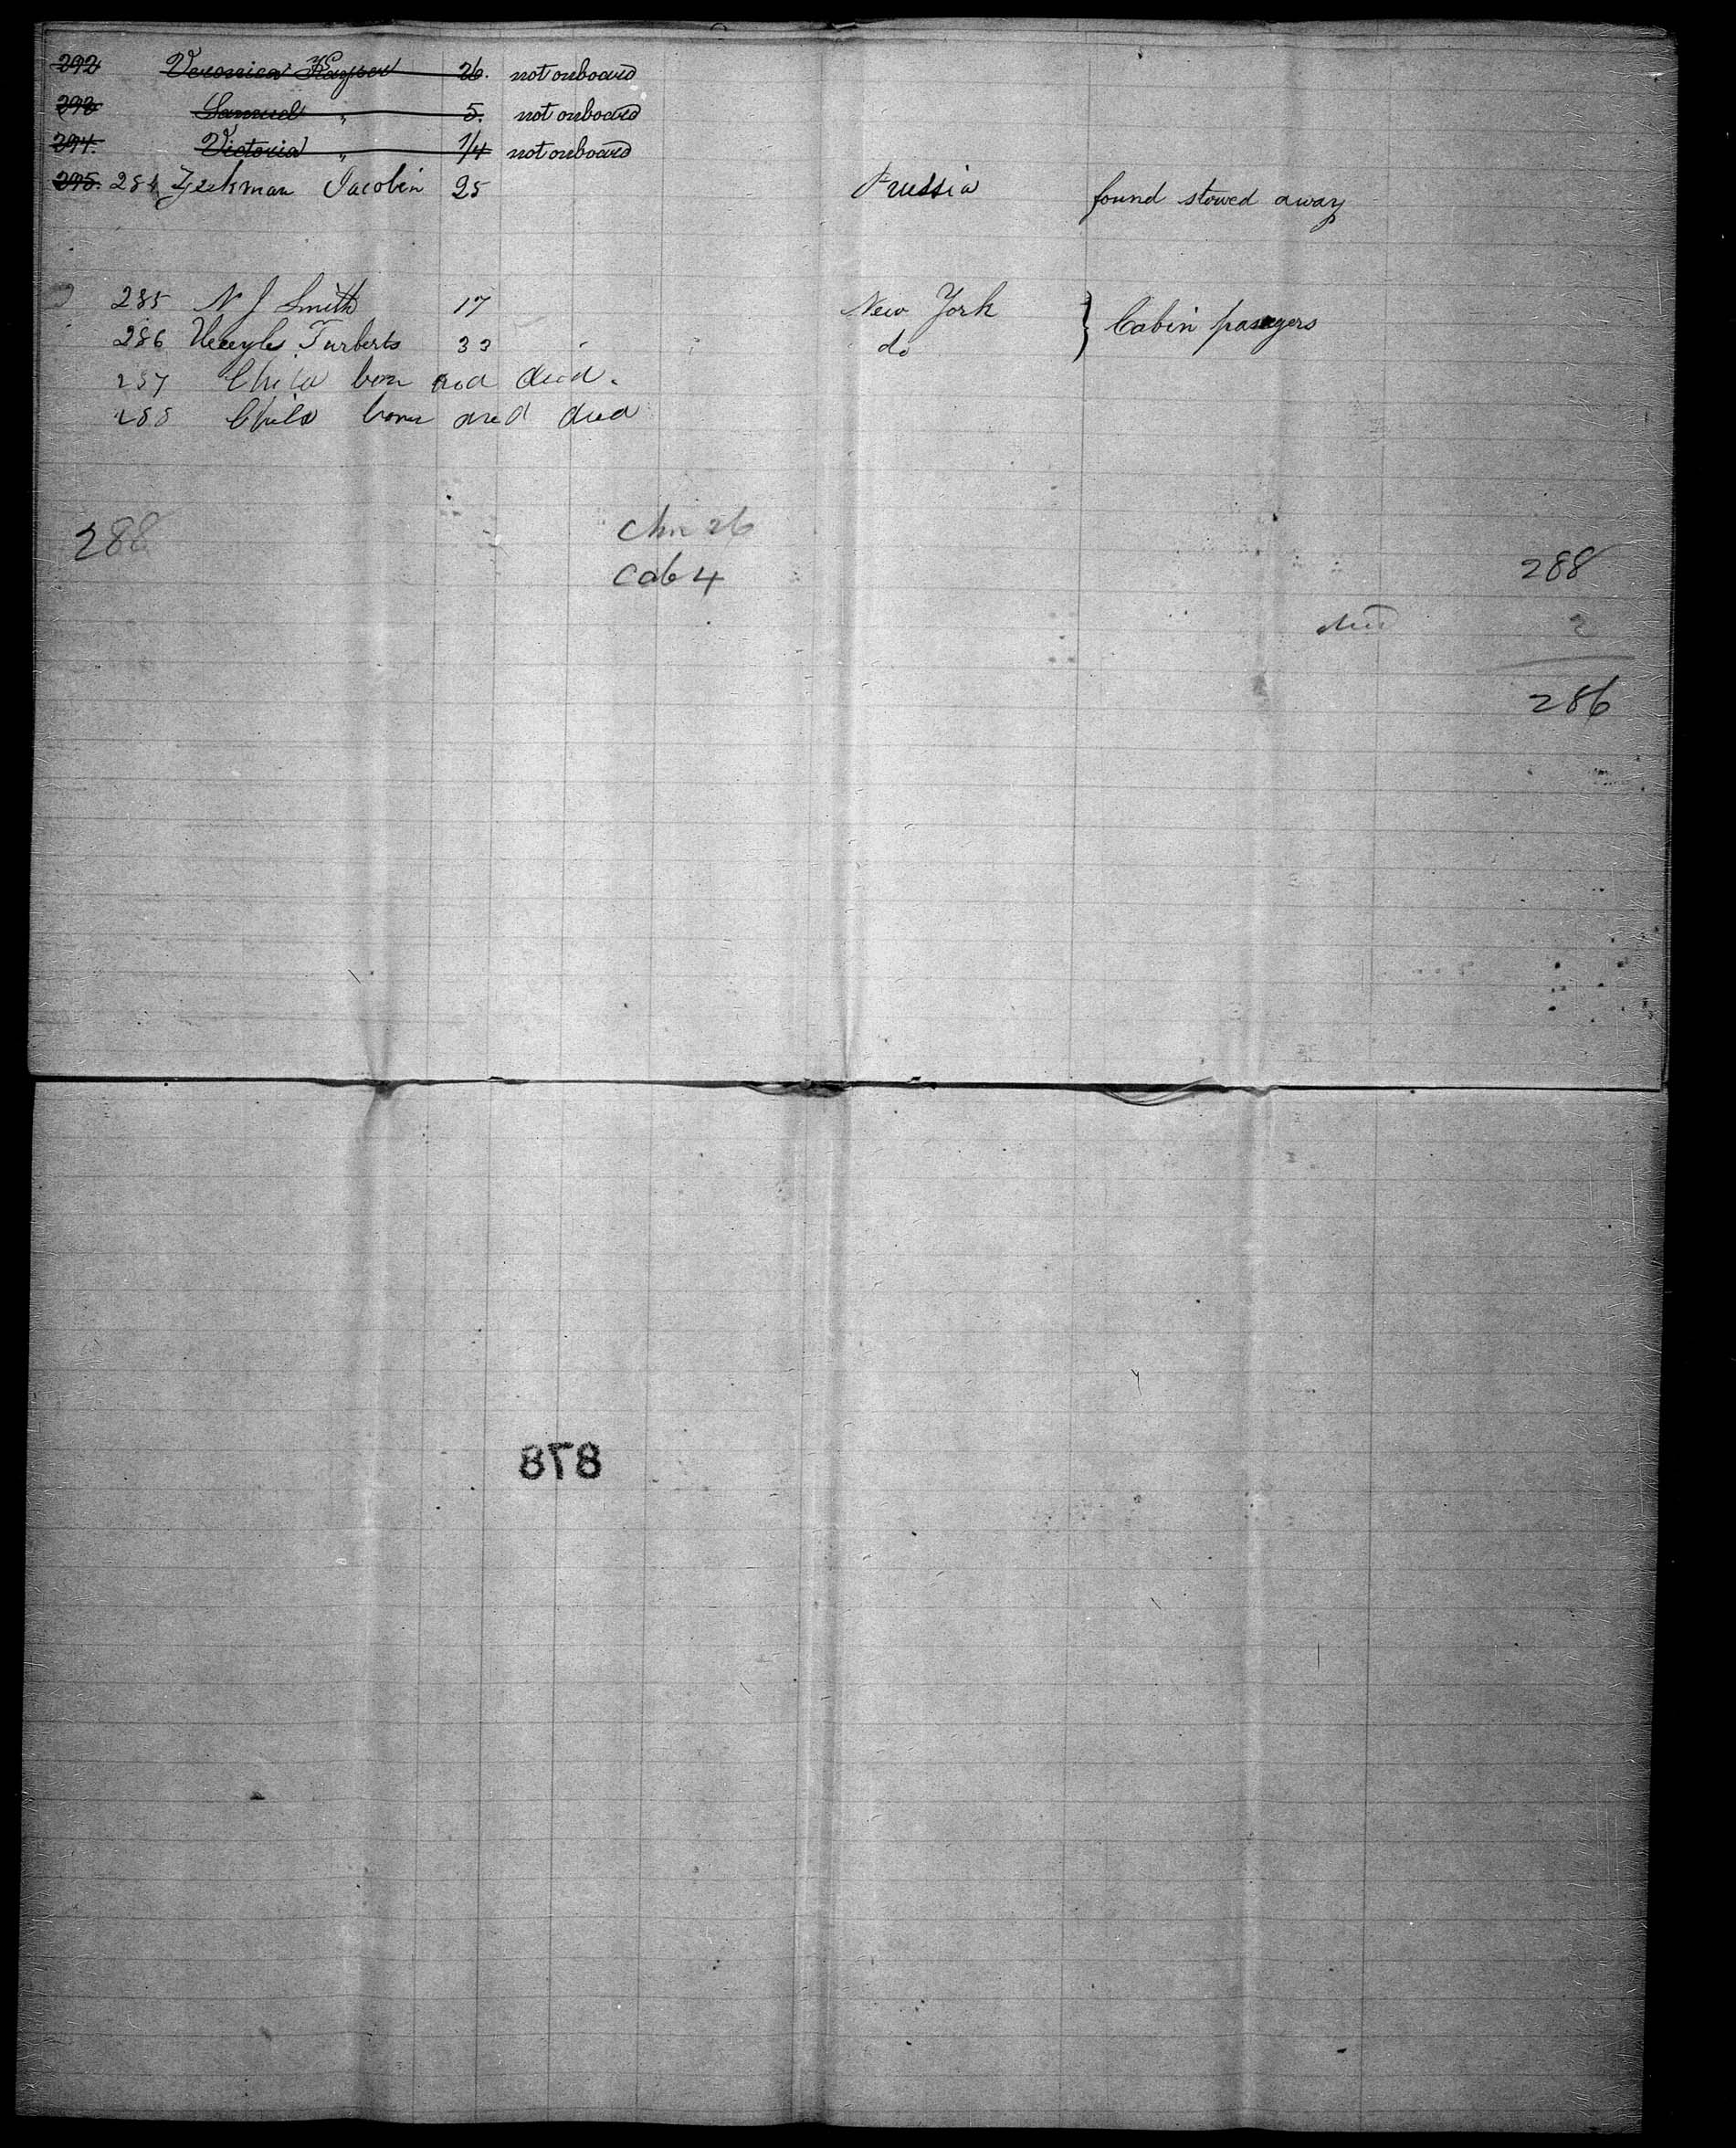 292 Veronica Kayser 26. not onboard
293 Samuel " 5. not onboard
294. Victoria " 1/4 not onboard
295. 284 Jacobin 25 Prussia found stowed away
285 N J Smith 17 New York } Cabin pasegers
286 33 do
287 Child born and died.
288 Child born and died
288 26
Cab 4
288
died 2
286
878